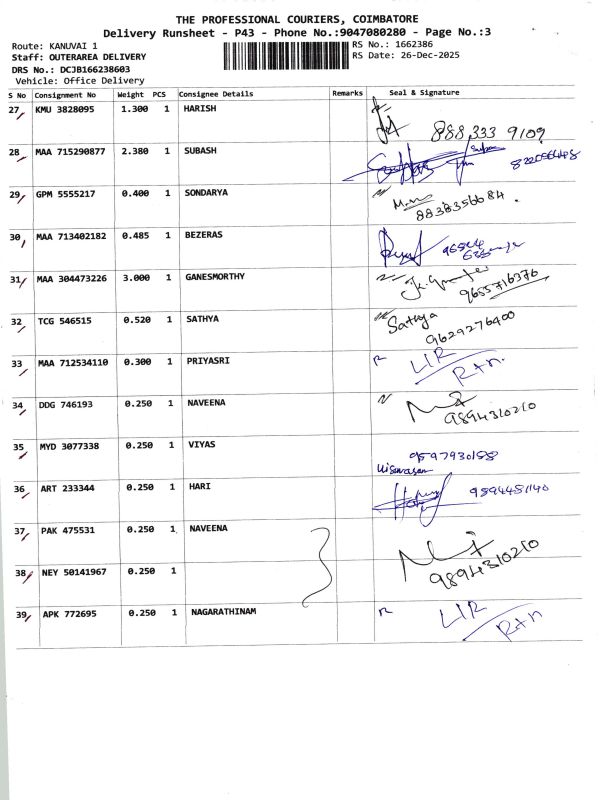 THE PROFESSIONAL COURIERS, COIMBATORE
Delivery Runsheet - P43 - Phone No.:9047080280 - Page No.:3
Route: KANUVAI 1
RS No.: 1662386
Staff: OUTERAREA DELIVERY
RS Date: 26-Dec-2025
DRS No.: DCJB166238603
Vehicle: Office Delivery
S No Consignment No Weight PCS Consignee Details Remarks Seal & Signature
27 KMU 3828095 1.300 1 HARISH
888 333 9109
28 MAA 715290877 2.380 1 SUBASH
29 GPM 5555217 0.400 1 SONDARYA
8838356684
30 MAA 713402182 0.485 1 BEZERAS
31 MAA 304473226 3.000 1 GANESMORTHY
9655716376
32 TCG 546515 0.520 1 SATHYA
Sathya
9629276400
33 MAA 712534110 0.300 1 PRIYASRI
LIR
R+n.
34 DDG 746193 0.250 1 NAVEENA
9894310210
35 MYD 3077338 0.250 1 VIYAS
9597930158
36 ART 233344 0.250 1 HARI
9894481140
37 PAK 475531 0.250 1 NAVEENA
38 NEY 50141967 0.250 1
9894310210
39 APK 772695 0.250 1 NAGARATHINAM
LIR
R+n